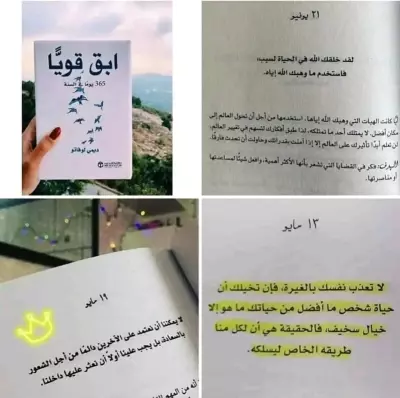 ابق قويًا
365 يومًا في السنة
ديمي لوفاتو
٢١ يونيو
لقد خلقك الله في الحياة لسبب،
فاستخدم ما وهبك الله إياه.
أيًا كانت الهبات التي وهبك الله إياها، استخدمها من أجل أن تحول العالم إلى
مكان أفضل. لا يمتلك أحد ما تمتلكه، لذا طبق أفكارك لتسهم في تغيير العالم.
لن تعلم أبدًا تأثيرك على العالم إلا إذا آمنت بقدراتك وحاولت أن تحدث فارقًا.
الهدف: فكر في القضايا التي تشعر بأنها الأكثر أهمية، وافعل شيئًا لمساعدتها
أو مناصرتها.
١٩ مايو
لا يمكننا أن نعتمد على الآخرين دائمًا من أجل الشعور
بالسعادة، بل يجب علينا أولًا أن نعثر عليها داخلنا.
أنه من المهم
١٣ مايو
لا تعذب نفسك بالغيرة، فإن تخيلك أن
حياة شخص ما أفضل من حياتك ما هو إلا
خيال سخيف، فالحقيقة هي أن لكل منا
طريقه الخاص ليسلكه.